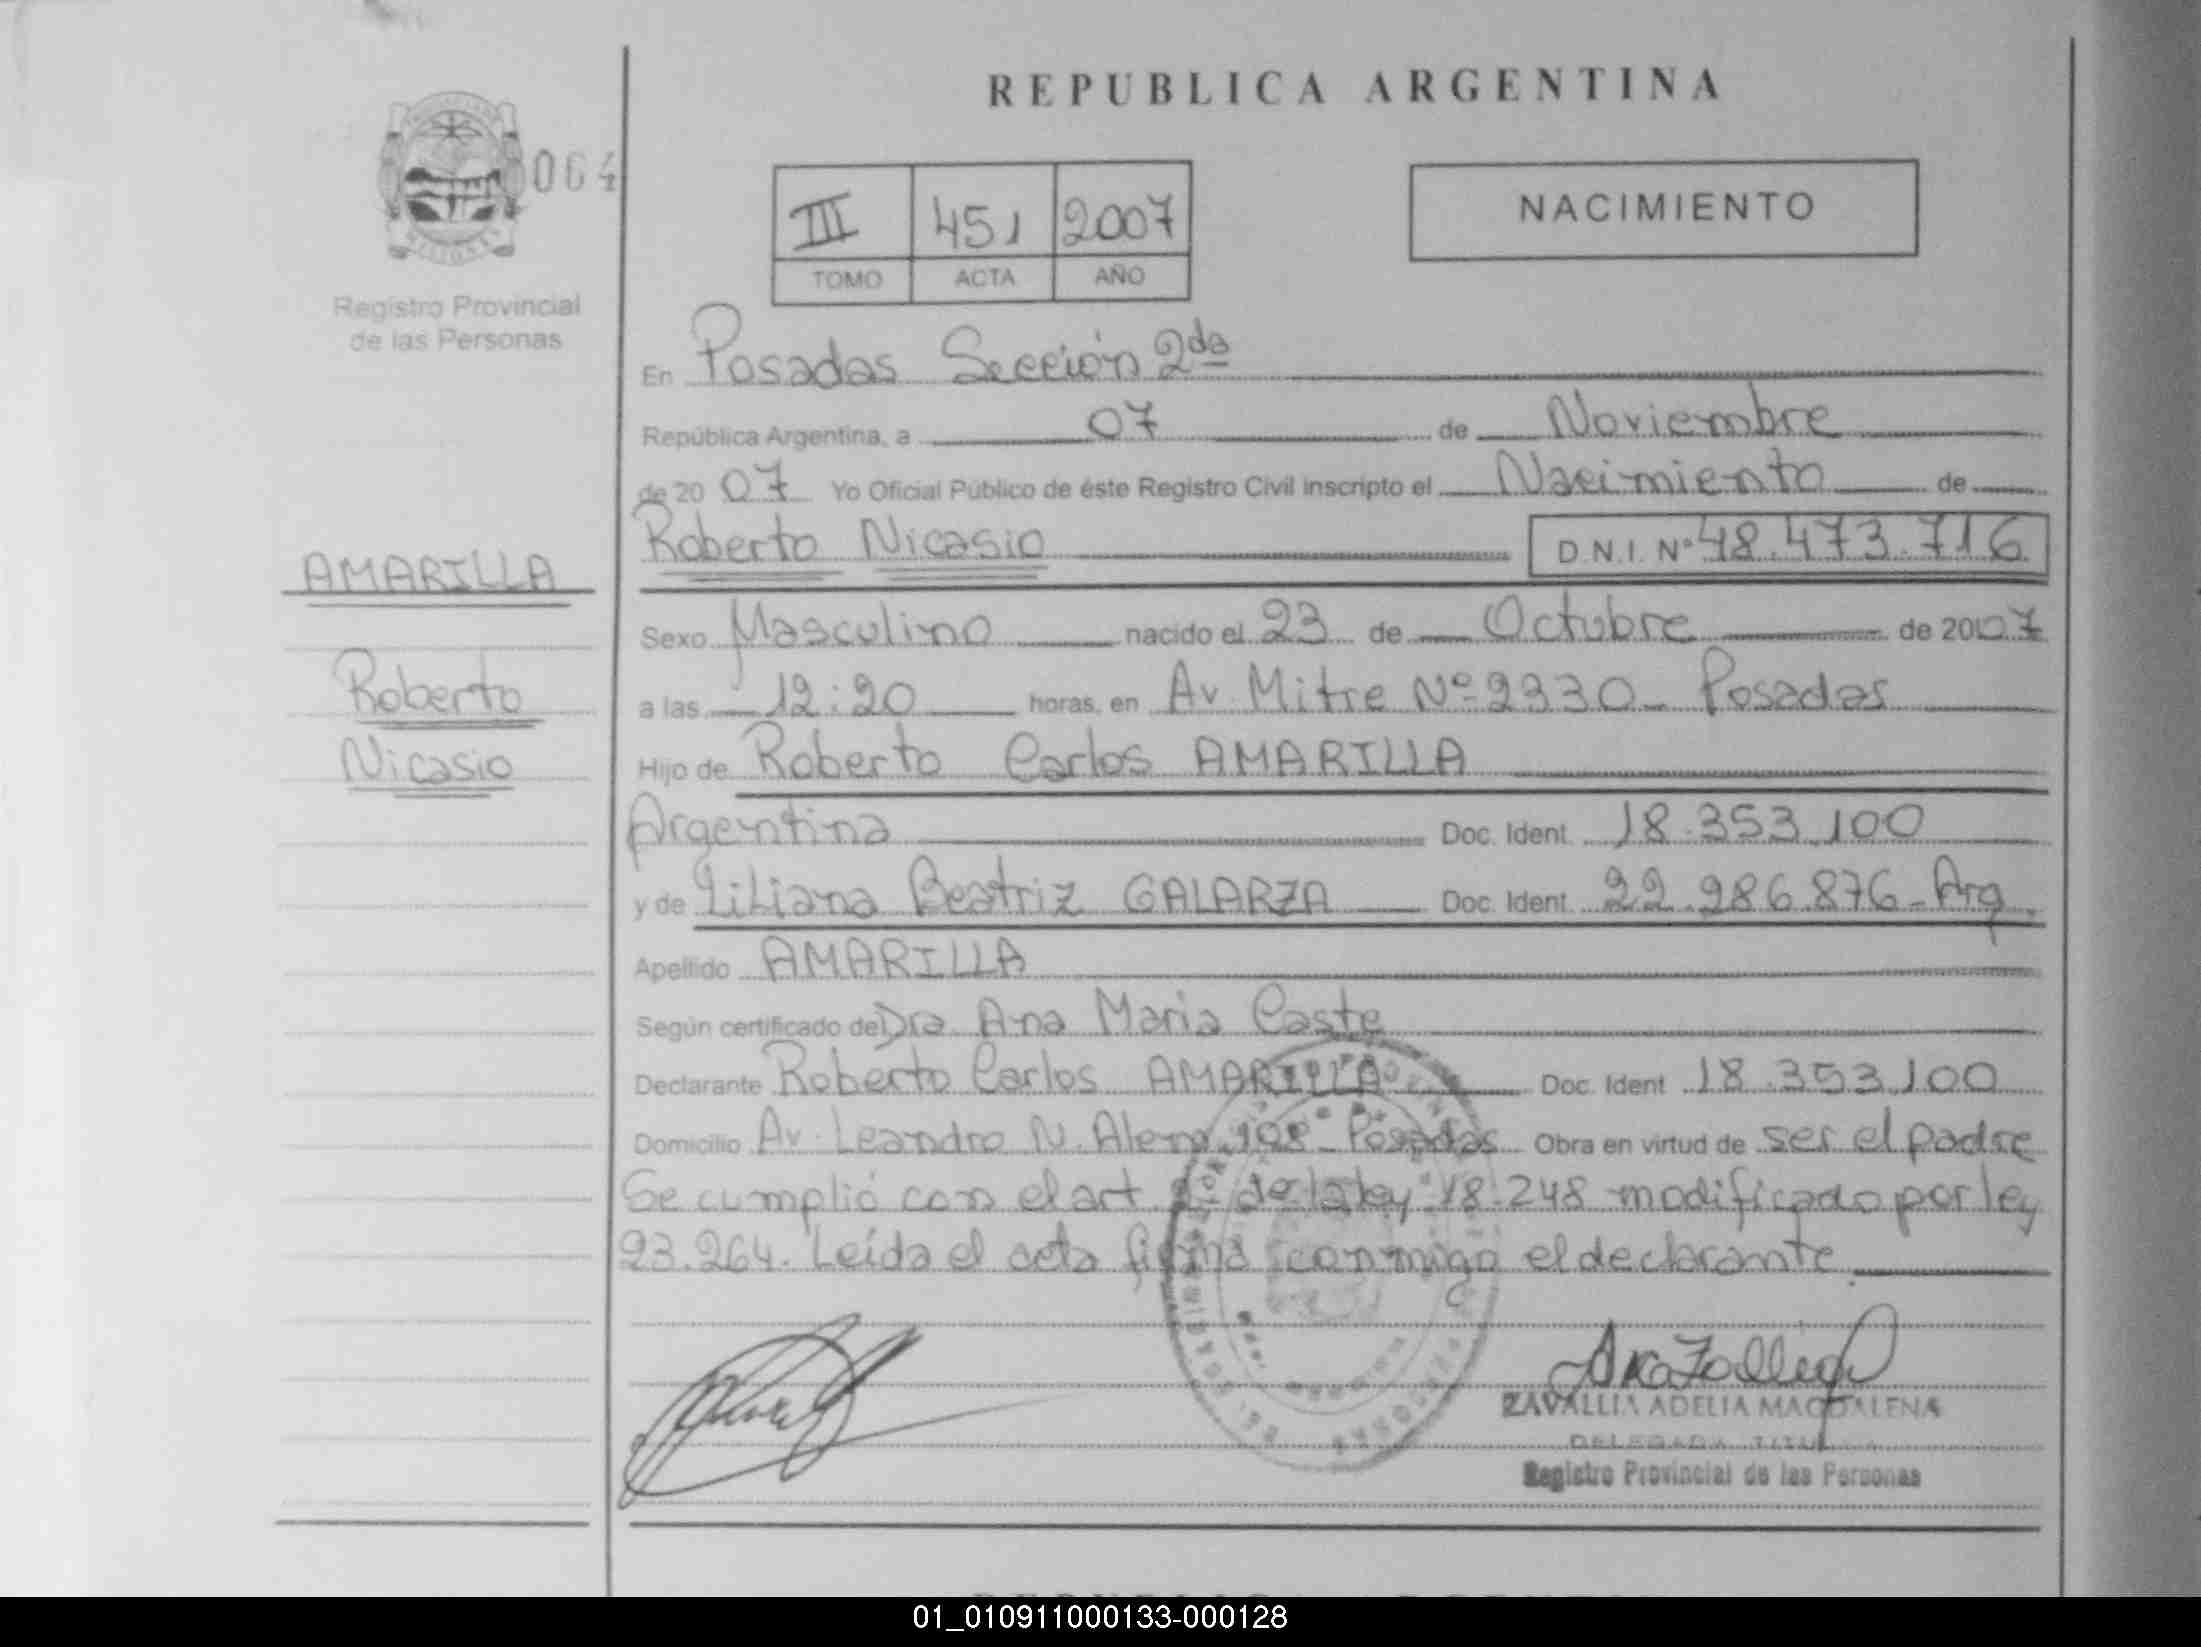 REPUBLICA ARGENTINA
064
MISIONES
Registro Provincial
de las Personas
III 451 2007
TOMO ACTA AÑO
NACIMIENTO
AMARILLA
Roberto
Nicasio
En Posadas Sección 2da
República Argentina, a 07 de Noviembre
de 20 07 Yo Oficial Público de éste Registro Civil inscripto el Nacimiento de
Roberto Nicasio D.N.I. Nº 48.473.716
Sexo Masculino nacido el 23 de Octubre de 2007
a las 12:20 horas, en Av. Mitre Nº 2330 - Posadas
Hijo de Roberto Carlos AMARILLA
Argentina Doc. Ident. 18.353.100
y de Liliana Beatriz GALARZA Doc. Ident. 22.986.876 - Arg.
Apellido AMARILLA
Según certificado de Dra Ana Maria Caste
Declarante Roberto Carlos AMARILLA Doc. Ident 18.353.100
Domicilio Av. Leandro N. Alem 108 - Posadas Obra en virtud de ser el padre
Se cumplió con el art. de la ley 18.248 modificado por ley
23.264. Leída el acta firma conmigo el declarante
ZAVALLIA ADELIA MAGDALENA
DELEGADA TITULAR
Registro Provincial de las Personas
01_010911000133-000128